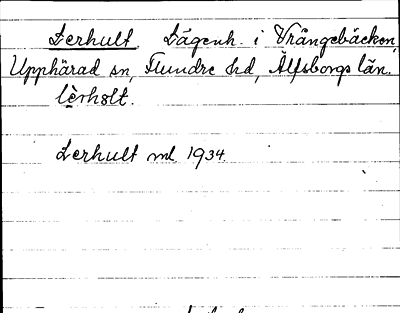 Lerhult. Lägenh. i Vrångebäcken,
Upphärad sn, Flundre hd, Älfsborgs län.
lèrhºlt.
Lerhult ml. 1934.